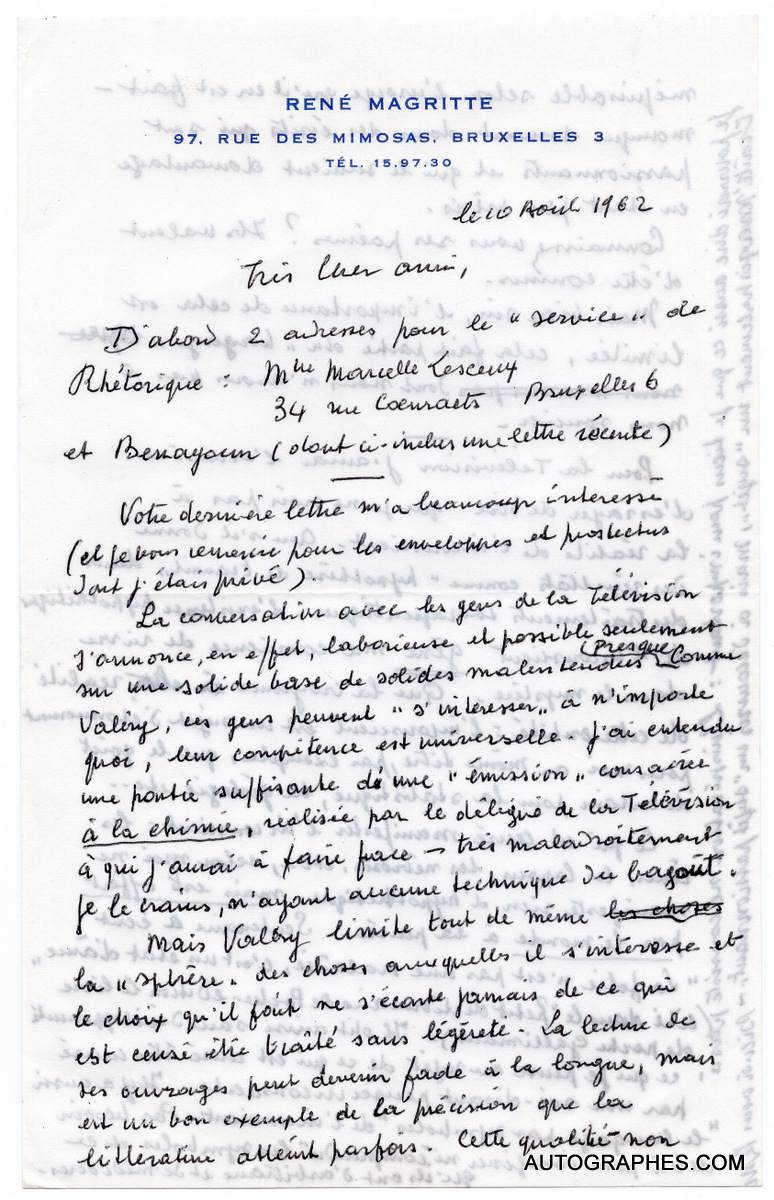 RENÉ MAGRITTE
97, RUE DES MIMOSAS, BRUXELLES 3
TÉL. 15.97.30
le 10 Août 1962
Très cher ami,
D'abord 2 adresses pour le "service" de
Rhétorique : Mme Marcelle Lesceux
34 rue Coenraets Bruxelles 6
et Benayoun (dont ci-inclus une lettre récente)
Votre dernière lettre m'a beaucoup intéressé
(et je vous remercie pour les enveloppes et prospectus
dont j'étais privé).
La conversation avec les gens de la Télévision
s'annonce, en effet, laborieuse et possible seulement
sur une solide base de solides malentendus (Presque) Comme
Valéry, ces gens peuvent "s'intéresser" à n'importe
quoi, leur compétence est universelle. J'ai entendu
une partie suffisante de une "émission" consacrée
à la chimie, réalisée par le délégué de la Télévision
à qui j'aurai à faire face – très maladroitement
je le crains, n'ayant aucune technique du bagout.
Mais Valéry limite tout de même les choses
la "sphère" des choses auxquelles il s'intéresse et
le choix qu'il fait ne s'écarte jamais de ce qui
est censé être traité sans légèreté. La lecture de
ses ouvrages peut devenir fade à la longue, mais
est un bon exemple de la précision que la
littérature atteint parfois. Cette qualité non
AUTOGRAPHES.COM